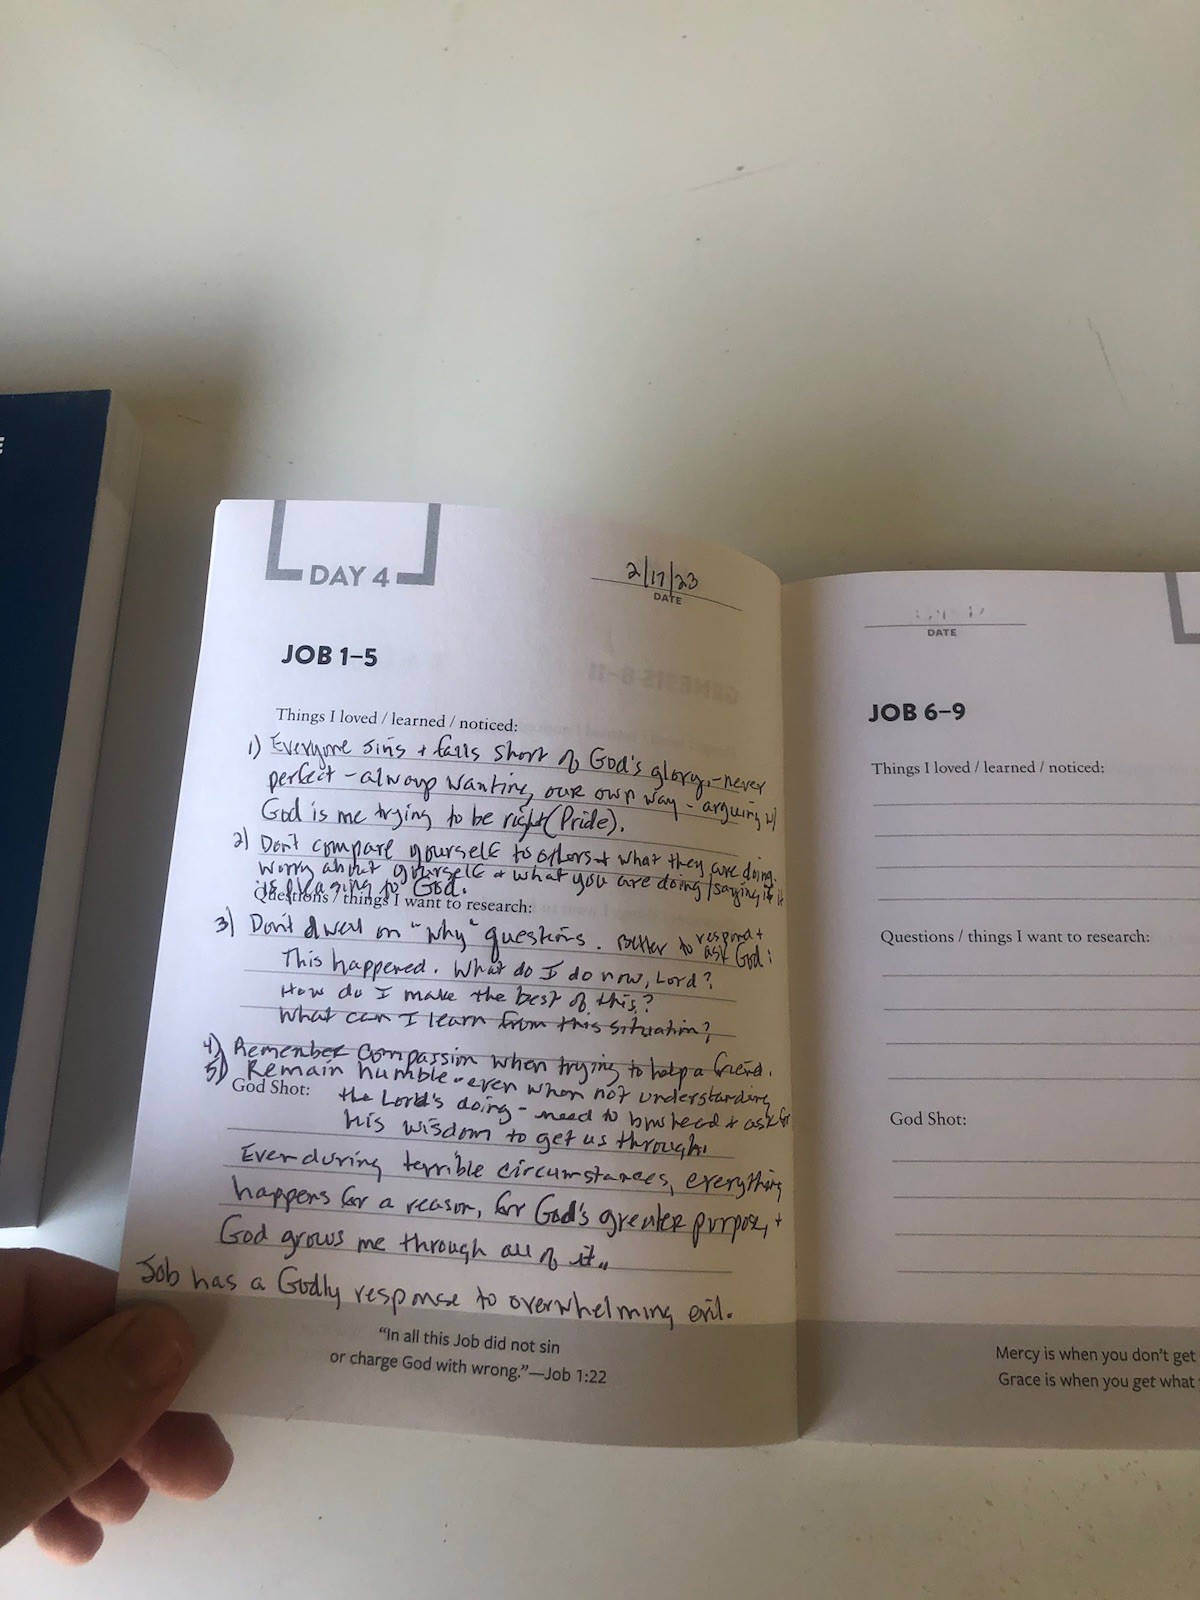 E
DAY 4
2/17/23
DATE
JOB 1–5
Things I loved / learned / noticed:
1) Everyone sins + falls short of God's glory,-never
perfect - always wanting our own way - arguing w/
God is me trying to be right (Pride).
2) Don't compare yourself to others + what they are doing.
Worry about yourself + what you are doing/saying if it
is pleasing to God.
Questions / things I want to research:
3) Don't dwell on "why" questions. Better to respond +
ask God:
This happened. What do I do now, Lord?
How do I make the best of this?
What can I learn from this situation?
4) Remember compassion when trying to help a friend.
5) Remain humble - even when not understanding
God Shot:
the Lord's doing - need to bow head + ask for
his wisdom to get us through.
Even during terrible circumstances, everything
happens for a reason, for God's greater purpose, +
God grows me through all of it..
Job has a Godly response to overwhelming evil.
"In all this Job did not sin
or charge God with wrong."—Job 1:22
DATE
JOB 6–9
Things I loved / learned / noticed:
Questions / things I want to research:
God Shot:
Mercy is when you don't get
Grace is when you get what